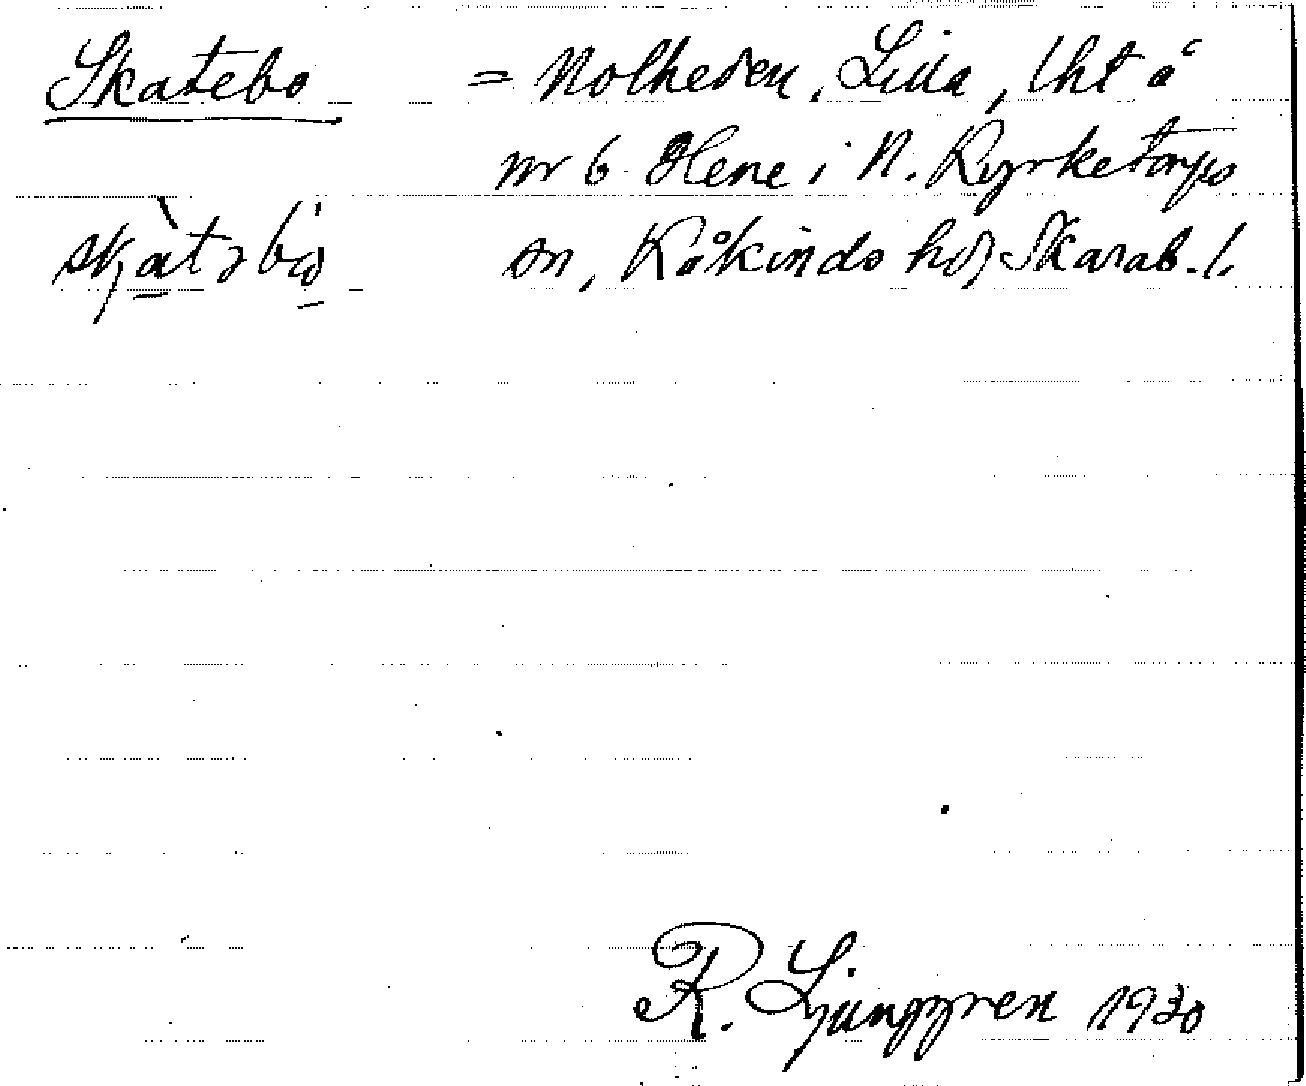 Skatebo = Nolheden, Lilla, lht å
nr 6 Hene i N. Kyrketorps
skàtəbo sn, Kåkinds hd, Skarab. l.
R. Ljunggren 1930